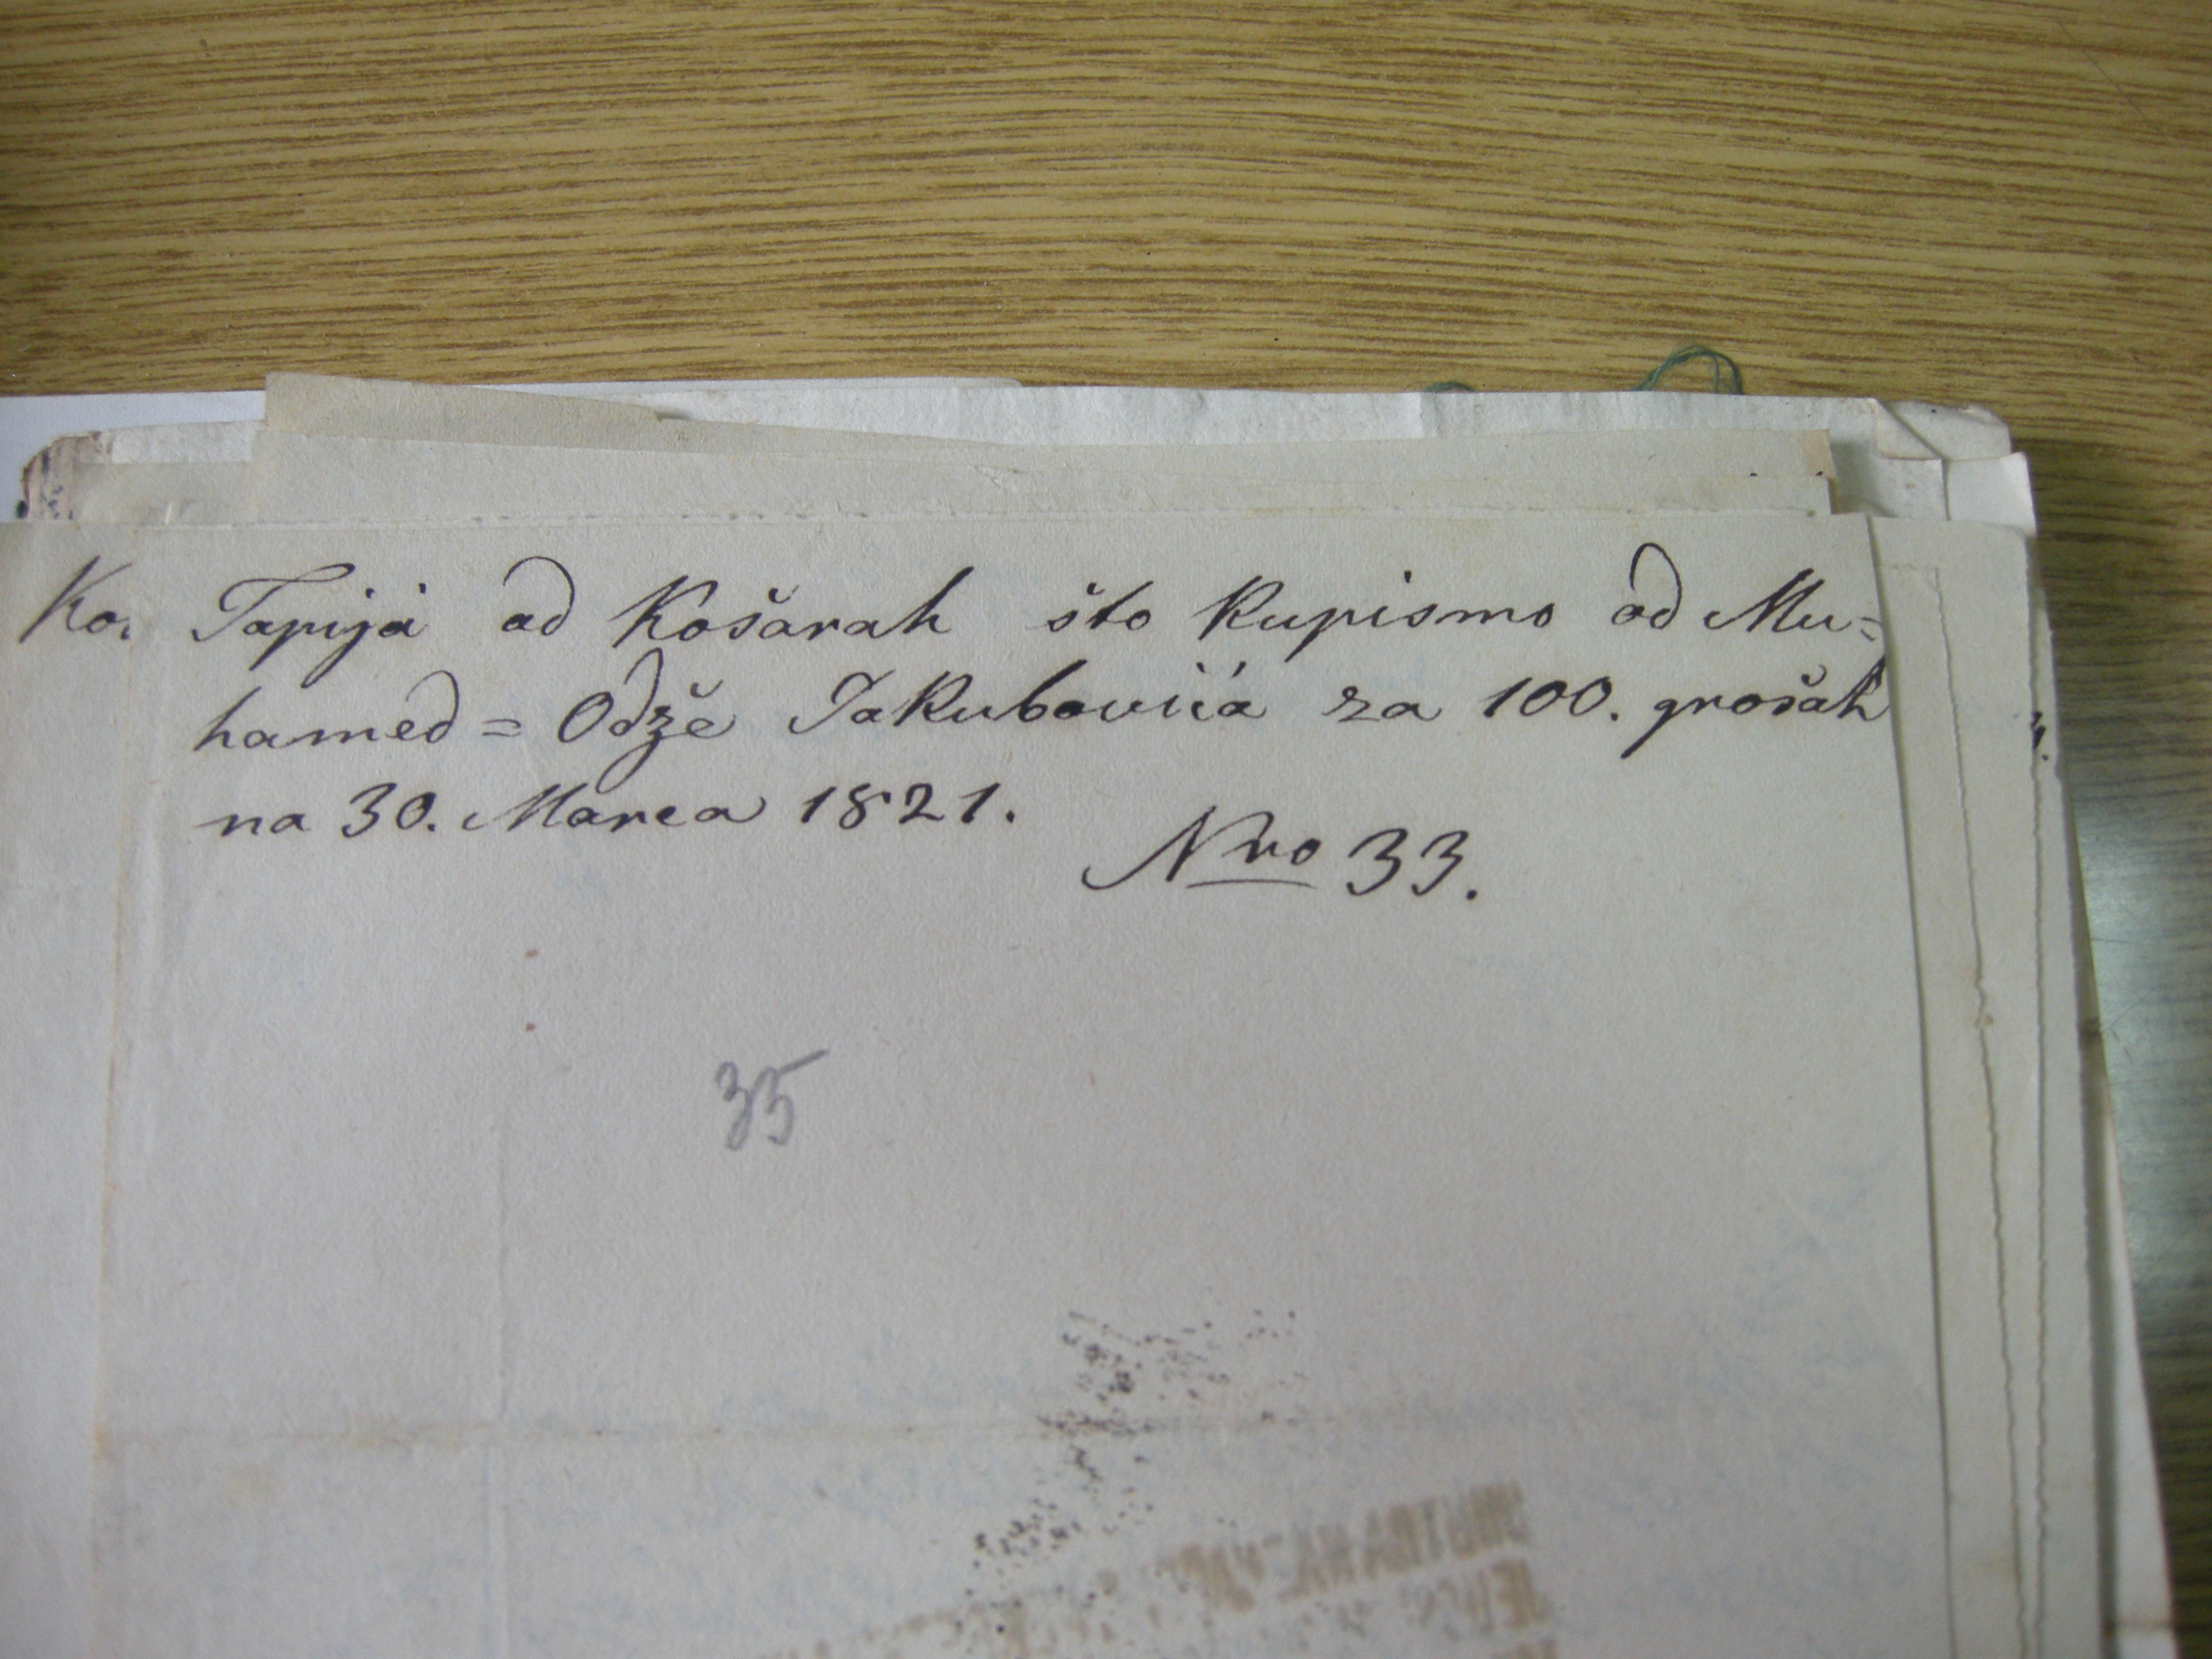 Ko.
Tapija od Košarah što Kupismo od Mu=
hamed = Odže Jakubovića za 100. grošah
na 30. Marca 1821.
Nro 33.
35